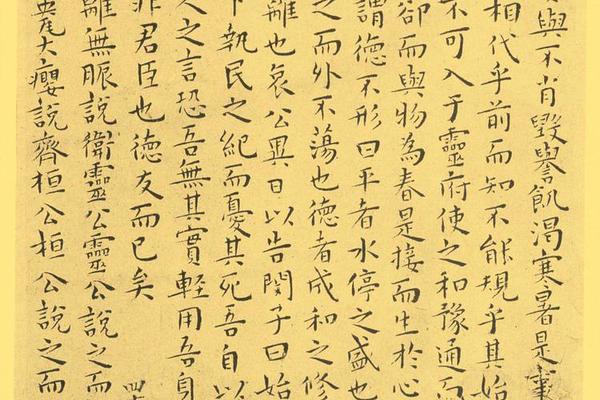 與不肖毀譽飢渴寒暑是事
相代乎前而知不能規乎其始
不可入于靈府使之和豫通而
卻而與物為春是接而生於心
謂德不形曰平者水停之盛也
之而外不蕩也德者成和之修
離也哀公異日以告閔子曰始
下執民之紀而憂其死吾自以
人之言恐吾無其實輕用吾身
非君臣也德友而已矣
四十
離無脤說衛靈公靈公說之而
甕㼜大癭說齊桓公桓公說之而